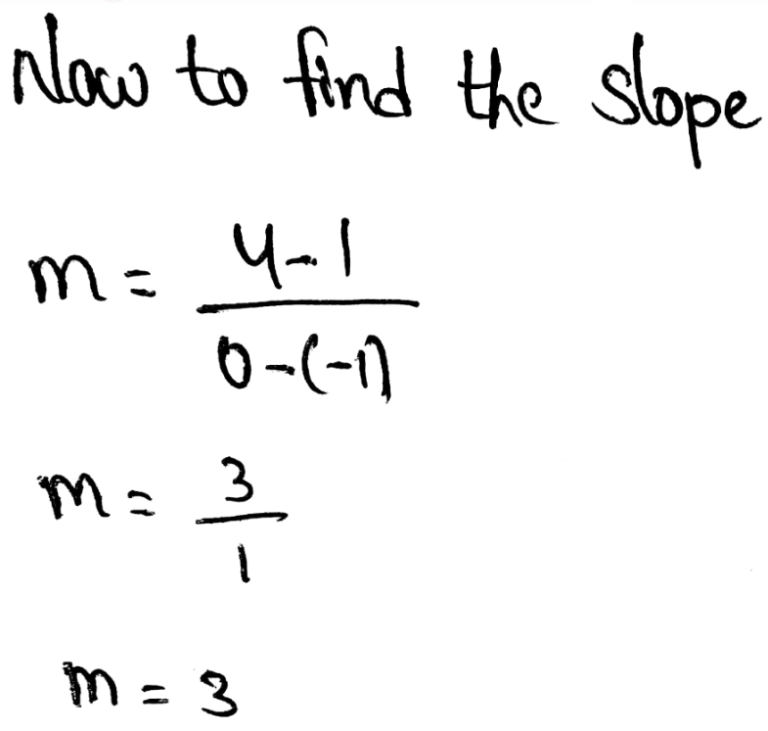 Now to find the slope
m = (4-1)/(0-(-1))
m = 3/1
m = 3